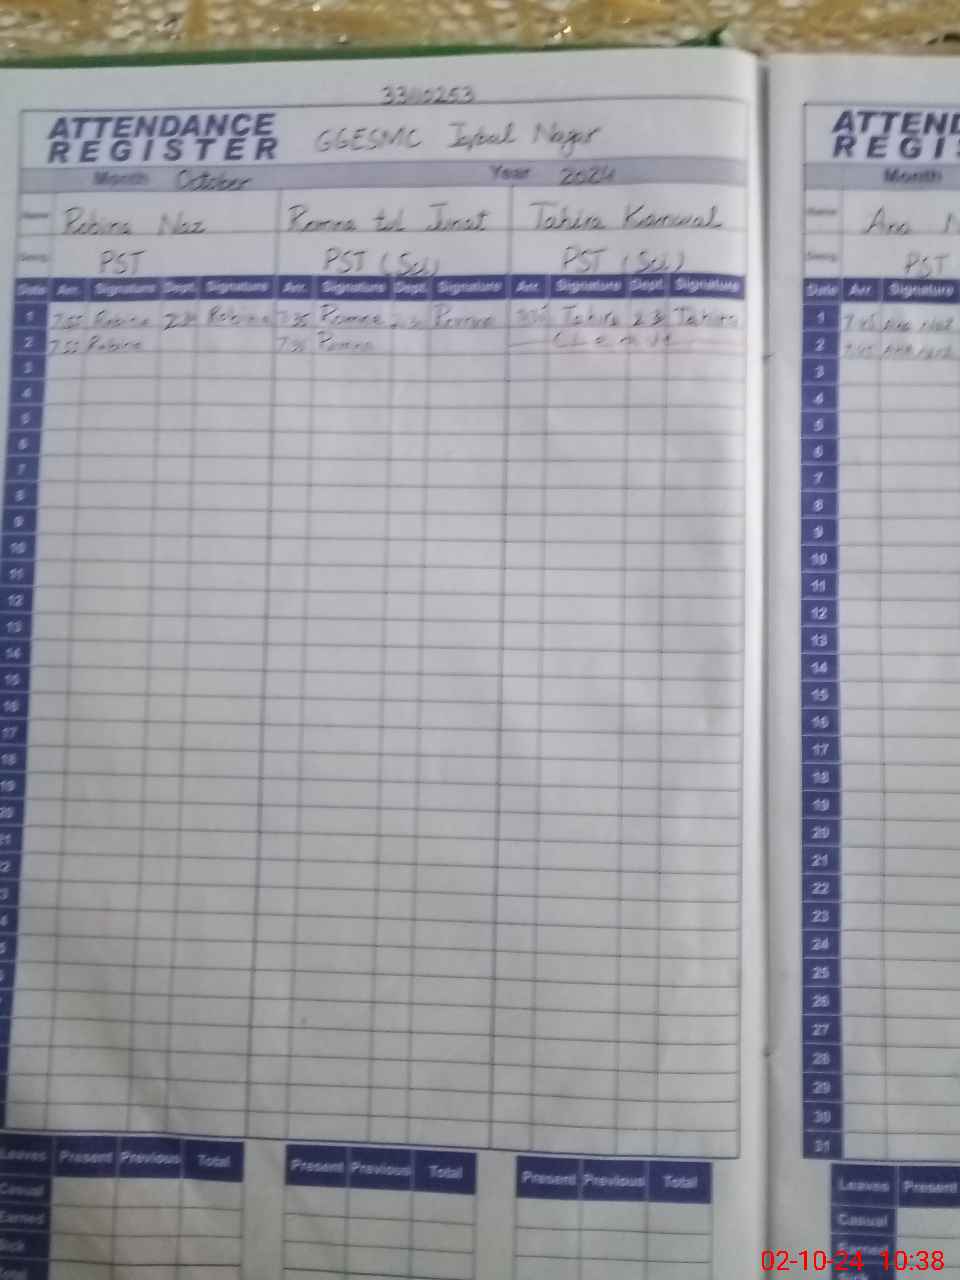 ATTENDANCE REGISTER
GGESMC Iqbal Nagar
Month October Year 2024
Name Robina Naz
Tahira Kanwal
Desig. PST PST (Sci) PST (Sci)
Date Arr. Signature Dept. Signature Arr. Signature Dept. Signature Arr. Signature Dept. Signature
1 7.55 Robina Robina 7.35 Romna Romna Tahira 2.30 Tahira
2 7.55 Robina Romna
3
4
5
6
7
8
9
10
11
12
13
14
15
16
17
18
19
20
21
Leaves Present Previous Total Present Previous Total Present Previous Total
Casual
Earned
Sick
Total
ATTEN
REGI
Month
Name
Desig. PST
Date Arr. Signature
1
2
3
4
5
6
7
8
9
10
11
12
13
14
15
16
17
18
19
20
21
22
23
24
25
26
27
28
29
30
31
Leaves Present
Casual
Earned
02-10-24 10:38